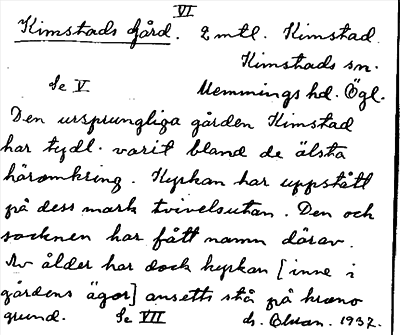 VI
Kimstads Gård. 2 mtl. Kimstad.
Kimstads sn.
Se V
Memmings hd. Ögl.
Den ursprungliga gården Kimstad
har tydl. varit bland de älsta
häromkring. Kyrkan har uppstått
på dess mark tvivelsutan. Den och
socknen har fått namn därav.
Av ålder har dock kyrkan [inne i
gårdens ägor] ansetts stå på krono
grund. Se VII
1937.